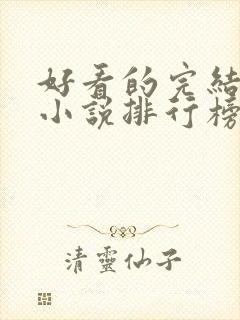 好看的完結
小說排行榜
清靈仙子